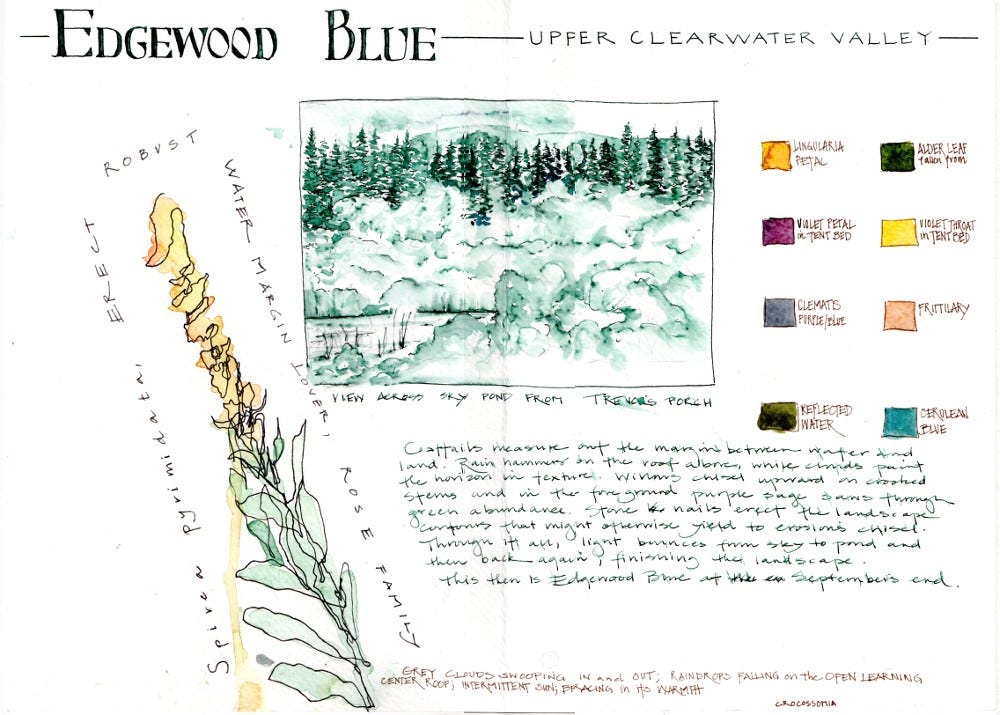 EDGEWOOD BLUE
UPPER CLEARWATER VALLEY
ERECT ROBUST
WATER MARGIN LOVER! ROSE FAMILY
Spirea pyrimidata!
LINGULARIA
PETAL
ALDER LEAF
fallen from
VIOLET PETAL
in TENT BED
VIOLET THROAT
in TENT BED
CLEMATIS
PURPLE/BLUE
FRITTILARY
REFLECTED
WATER
CERULEAN
BLUE
VIEW ACROSS SKY POND FROM TREVOR'S PORCH
Cattails measure out the margin between water and
land. Rain hammers on the roof above, while clouds paint
the horizon in texture. Willows chisel upward on crooked
stems and in the foreground purple sage through
green abundance. Stone nails erect the landscape
contours that might otherwise yield to erosion's chisel.
Through it all, light bounces from sky to pond and
then back again, finishing the landscape.
This then is Edgewood Blue at September's end.
GREY CLOUDS SWOOPING in and OUT; RAINDROPS FALLING on the OPEN LEARNING
CENTER ROOF; INTERMITTENT SUN; BRACING in its WARMTH
CROCOSSOMIA